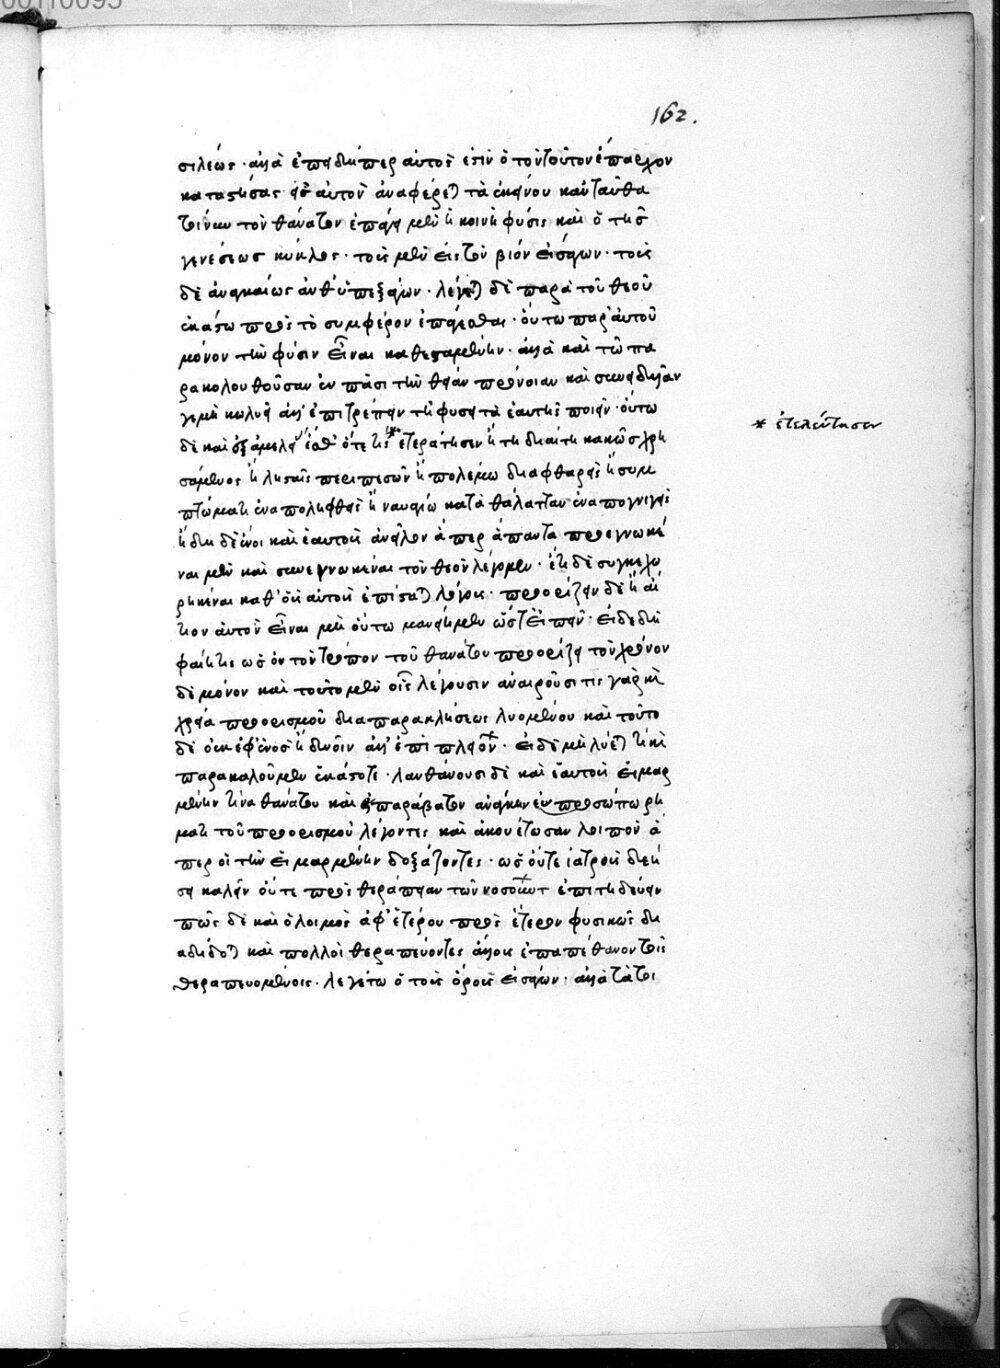 00110095
162.
σιλέως · ἀλλὰ ἐπειδήπερ αὐτός ἐστιν ὁ τὸν τοῦτον ἔπαρχον
καταστήσας εἰς αὐτὸν ἀναφέρεται τὰ ἐκείνου κἀνταῦθα
τοίνυν τὸν θάνατον ἐπάγει μὲν ἡ κοινὴ φύσις καὶ ὁ τῆς
γενέσεως κύκλος · τοὺς μὲν εἰς τὸν βίον εἰσάγων · τοὺς
δὲ ἀναγκαίως ἀνθυπεξάγων · λέγεται δὲ παρὰ τοῦ θεοῦ
ἑκάστω πρὸς τὸ συμφέρον ἐπάγεσθαι · οὕτω παρ' αὐτοῦ
μόνον τὴν φύσιν εἶναι καθεσταμένην · ἀλλὰ καὶ τῶ πα
ρακολουθοῦσαν ἐν πᾶσι τὴν θείαν πρόνοιαν καὶ συνδιδοῦσαν
γε μὴ κωλύειν ἀλλ' ἐπιτρέπειν τῇ φύσει τὰ ἑαυτῆς ποιεῖν · οὕτω
δὲ καὶ ἐξ ἀμελείας ἔσθ' ὅτε τις * ἢ τῇ διαίτη κακῶς χρη
* ἐτελεύτησεν
σάμενος ἢ λησταῖς περιπεσὼν ἢ πολέμω διαφθαρεὶς ἢ συμ
πτώματι ἐναποληφθεὶς ἢ ναυαγίω κατὰ θάλατταν ἐναποπνιγεὶς
ἤδη δὲ ἔνιοι καὶ ἑαυτοὺς ἀνεῖλον ἅπερ ἅπαντα προεγνωκέ
ναι μὲν καὶ συνεγνωκέναι τὸν θεὸν λέγομεν · ἔτι δὲ συγκεχω
ρηκέναι καθ' οὓς αὐτὸς ἐπίσταται λόγους · προορίζειν δὲ ἢ αἴ
τιον αὐτὸν εἶναι μὴ οὕτω μανείημεν ὥστε εἰπεῖν · εἰ δὲ δὴ
φαίη τις ὡς οὐ τὸν τρόπον τοῦ θανάτου προορίζει τὸν χρόνον
δὲ μόνον καὶ τοῦτο μὲν οἷς λέγουσιν ἀναιροῦσι τίς γὰρ καὶ
χρεία προορισμοῦ διὰ παρακλήσεως λυομένου καὶ τοῦτο
δὲ οὐκ ἐφ' ἑνὸς ἢ δυοῖν ἀλλ' ἐπὶ πλειόνων · εἰ δὲ μὴ λύεται τί καὶ
παρακαλοῦμεν ἑκάστοτε · λανθάνουσι δὲ καὶ ἑαυτοὺς εἱμαρ
μένην τινὰ θανάτου καὶ ἀπαράβατον ἀνάγκην ἐν προσώπω ῥή
ματι τοῦ προορισμοῦ λέγοντες καὶ ἀκουέτωσαν λοιπὸν ἅ
περ οἱ τὴν εἱμαρμένην δοξάζοντες · ὡς οὔτε ἰατροὺς δεή
σει καλεῖν οὔτε πρὸς θεραπείαν τῶν νοσούντων ἐπιτηδεύειν
πῶς δὲ καὶ ὁ λοιμὸς ἀφ' ἑτέρου πρὸς ἕτερον φυσικῶς δι
αδίδοται καὶ πολλοὶ θεραπεύοντες ἄλλους ἐπαπέθανον τοῖς
θεραπευομένοις · λεγέτω ὁ τοὺς ὅρους εἰσάγων · ἀλλὰ τὰ τοι